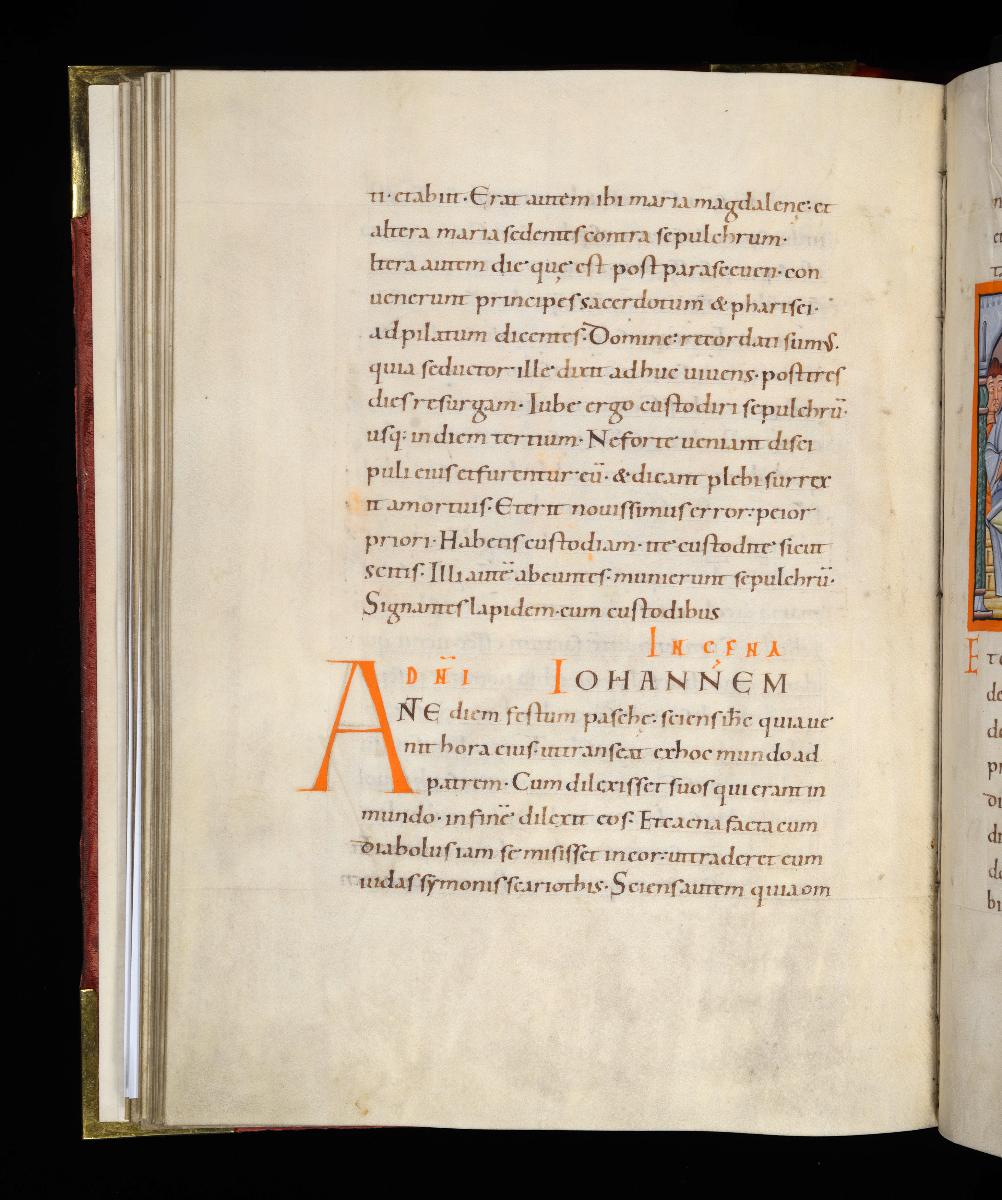 ti· et abiit· Erat autem ibi maria magdalenę· et
altera maria sedentes contra sepulchrum·
ltera autem die quę est post parasceuen· con
uenerunt principes sacerdotum & pharisei·
ad pilatum dicentes· Domine· recordati sumus·
quia seductor ille dixit adhuc uiuens· post tres
dies resurgam· Iube ergo custodiri sepulchrū·
usq; in diem tertium· Ne forte ueniant disci
puli eius et furentur eū· & dicant plebi surrex
it a mortuis· Et erit nouissimus error· peior
priori· Habetis custodiam· ite custodite sicut
scitis· Illi autē abeuntes· munierunt sepulchrū·
Signantes lapidem· cum custodibus
IN CENA
DÑI IOHANNEM
ANTE diem festum paschę· sciens ihc quia ue
nit hora eius· ut transeat ex hoc mundo ad
patrem· Cum dilexisset suos qui erant in
mundo· in finē dilexit eos· Et caena facta cum
diabolus iam se misisset in cor· ut traderet eum
iudas symonis scariothis· Sciens autem quia om